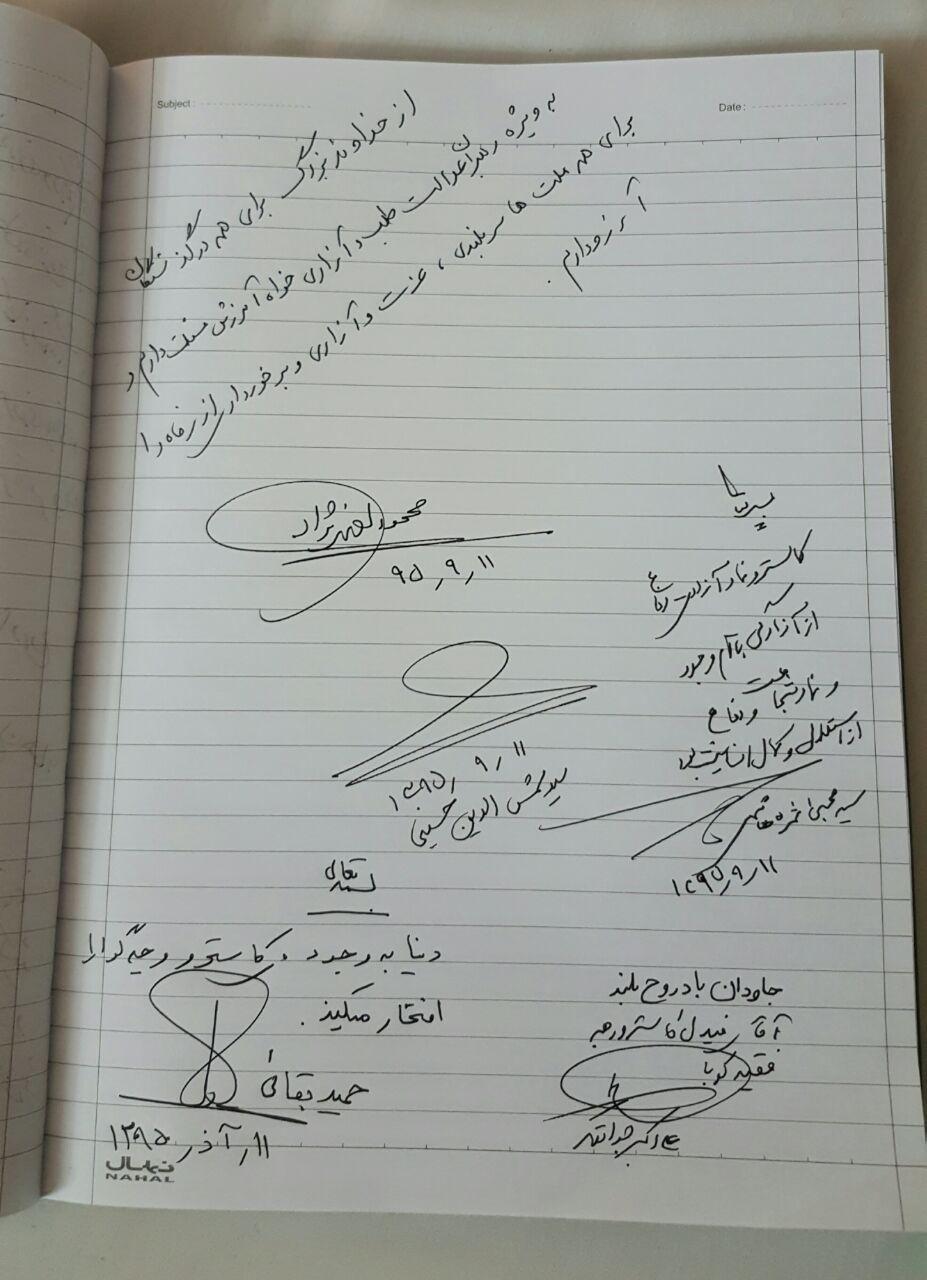 Subject:
Date:
از خداوند بزرگ برای همه درگذشتگان
به ویژه رهبران عدالت طلب و آزادی خواه آمرزش مسئلت دارم و
برای همه ملت ها سربلندی، عزت و آزادی و برخورداری از رفاه را
آرزو دارم.
محمود احمدی نژاد
۹۵/۹/۱۱
کاسترو نماد آزادگی دفاع
از آزادگی با تمام وجود
و نماد شجاعت و دفاع
از استقلال و کمال انسانیت
سید مجتبی ثمره هاشمی
۱۳۹۵/۹/۱۱
۱۳۹۵/۹/۱۱
سید شمس الدین حسینی
بسمه تعالی
دنیا به وجود کاسترو و چه گوارا
افتخار میکند.
حمید بقائی
۱۱/آذر/۱۳۹۵
جاودان باد روح بلند
آقای فیدل کاسترو رهبر
فقید کوبا
علی اکبر جوانفکر
نهال
NAHAL